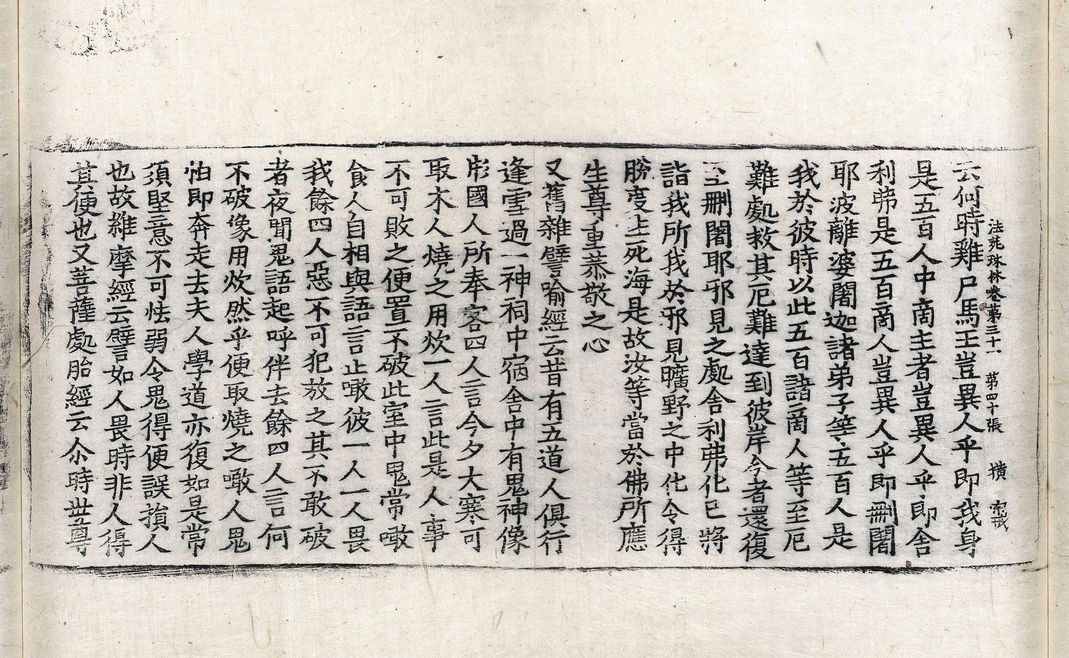 云何時雞尸馬王豈異人乎即我身
法苑珠林卷第三十一 第四十張 横
是五百人中商主者豈異人乎即舍
利弗是五百商人豈異人乎即刪闍
耶波離婆闍迦諸弟子等五百人是
我於彼時以此五百諸商人等至厄
難處救其厄難達到彼岸今者還復
至刪闍耶邪見之處舍利弗化已將
詣我所我於邪見曠野之中化令得
勝度生死海是故汝等當於佛所應
生尊重恭敬之心
又舊雜譬喻經云昔有五道人俱行
逢雪過一神祠中宿舍中有鬼神像
形國人所奉客四人言今夕大寒可
取木人燒之用炊一人言此是人事
不可敗之便置不破此室中鬼常噉
食人自相與語言止噉彼一人一人畏
我餘四人惡不可犯放之其不敢破
者夜聞鬼語起呼伴去餘四人言何
不破像用炊然乎便取燒之噉人鬼
怕即奔走去夫人學道亦復如是常
須堅意不可怯弱令鬼得便誤損人
也故維摩經云譬如人畏時非人得
其便也又菩薩處胎經云尒時世尊